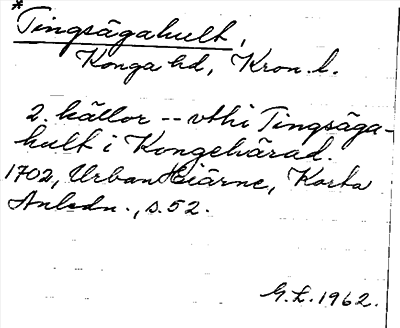 *Tingsägahult,
Konga hd, Kron. l.
2. källor -- vthi Tingsäga-
hult i Kongehärad.
1702, Urban Hiärne, Korta
Anledn., s. 52.
G.L. 1962.